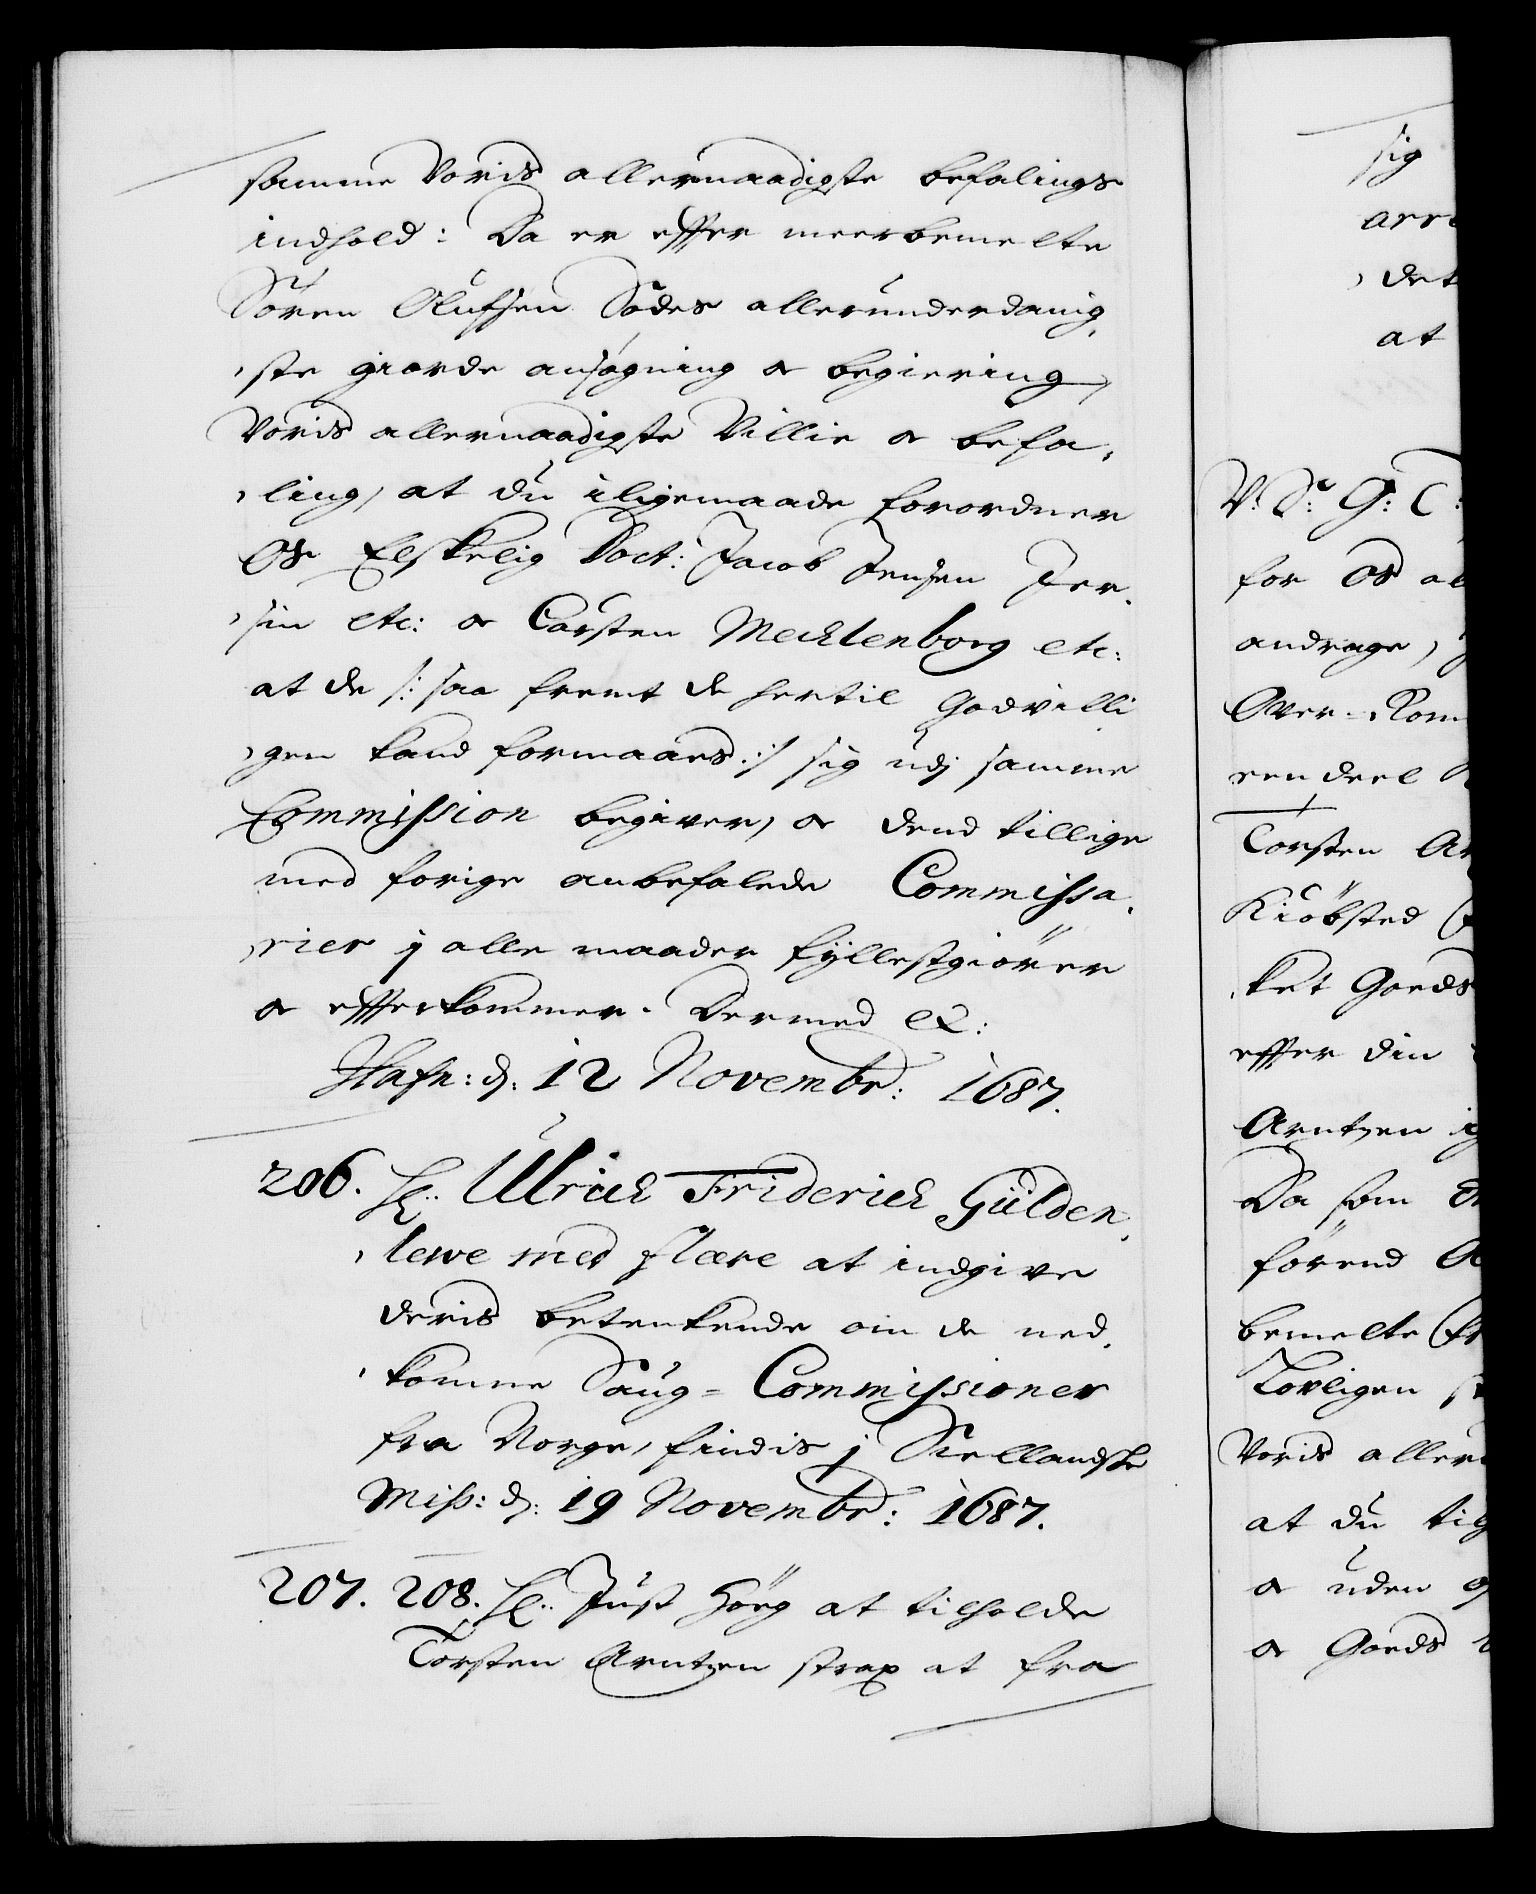 samme Voris allernaadigste befalings
indhold: Da er effter meerbemelte
Sören Olufsen Sodes allerunderdanig,
,ste giorde ansøgning oc begiering,
Voris allernaadigste Villie oc befa,
,ling, at du iligemaade forordner
Os Elskelig Doct: Jacob Jensen Jer,
,sin etc: oc Carsten Mecklenborg etc:
at de /: saa fremt de hertil Godvilli
,gen kand formaaes :/ sig udj samme
Commission begiver, oc dend tillige
med forige anbefalede Commissa,
,rier j alle maader fyllestgiörer
oc effterkommer. Dermed etc:
Hafn: d: 12 Novembr: 1687.
206. Hr: Ulrich Friderich Gülden,
,lewe med flere at indgive
deris betenkende om de ned,
,komne Saug= Commissioner
fra Norge, findis j Siellandske
Miss: d: 19 Novembr: 1687.
207. 208. Hr: Just Høeg at tilholde
Torsten Arntzen strax at fra
sig
det
at
V: S: G: T:
for os al
andrage,
Over=
Torsten
Kiöbsted
,ket Goeds
effter din
Arntzen
Da som
förend
bemelte
Lovligen
Voris aller
at du
oc uden
oc Goeds